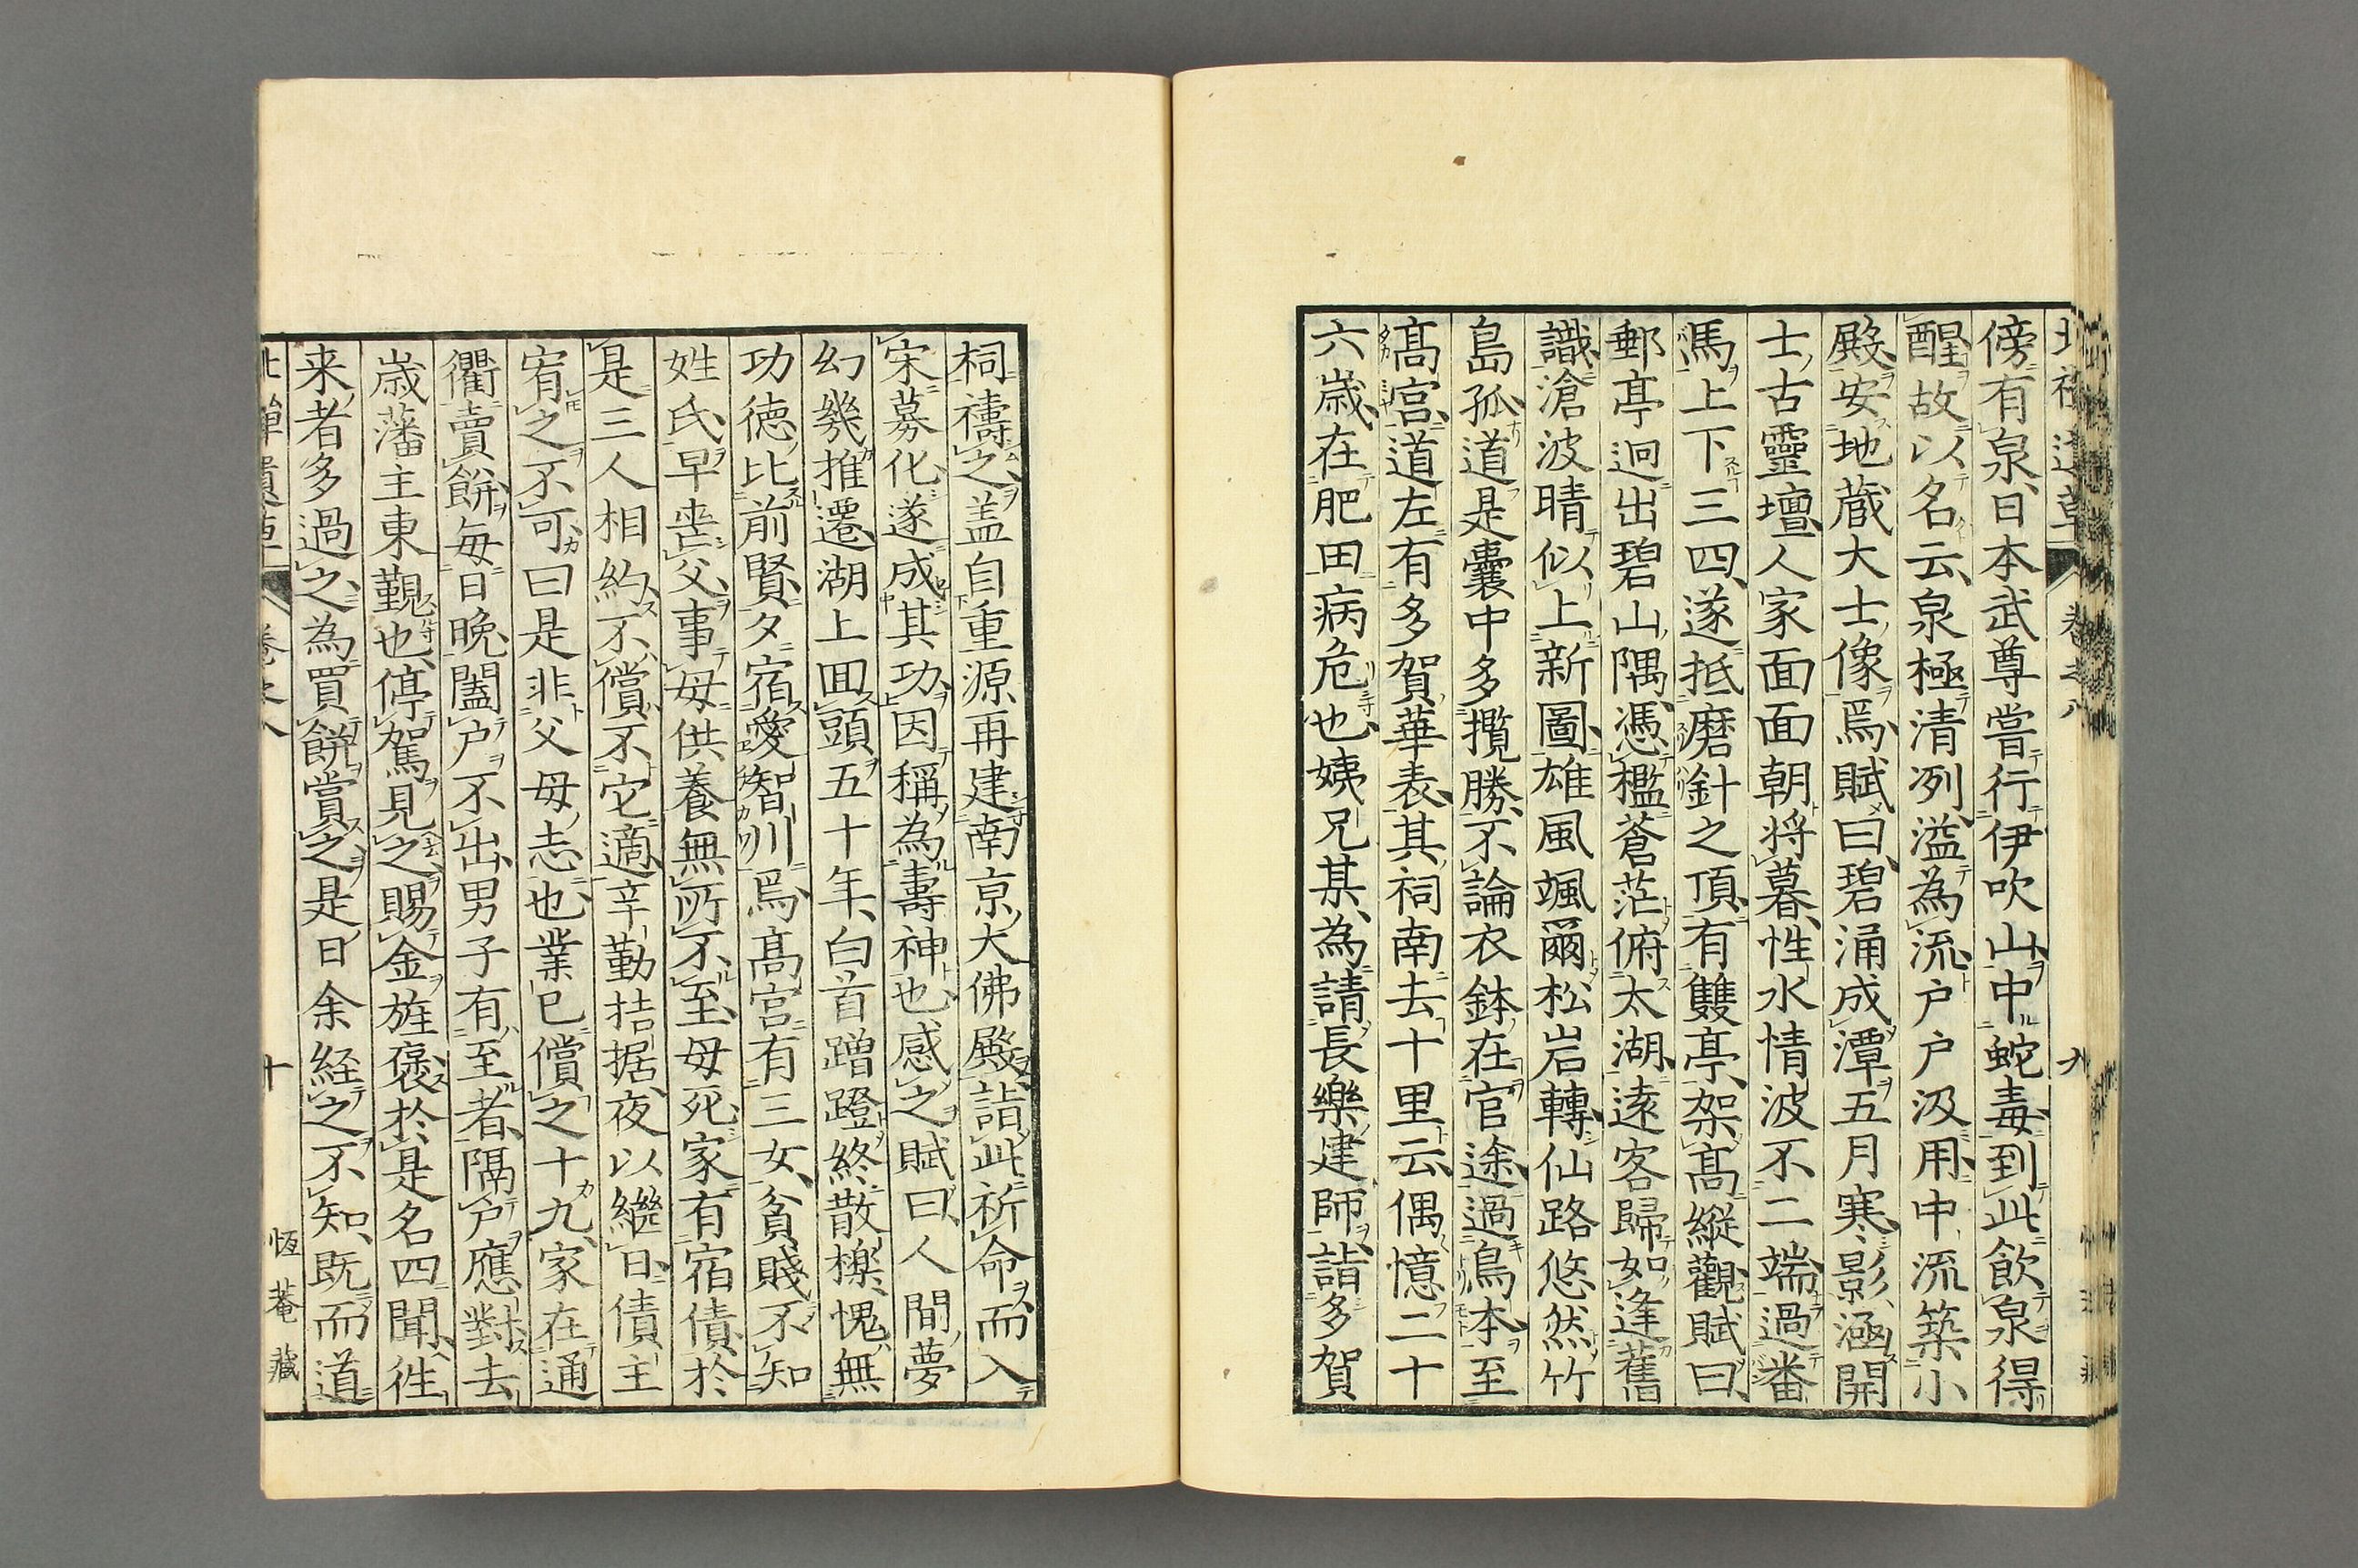 傍有泉日本武尊嘗行伊吹山中蛇毒到此飲泉得
醒故以名云泉極清冽溢為流戸戸汲用中流築小
殿安地蔵大士像焉賦曰碧涌成潭五月寒影涵開
士古靈壇人家面面朝将暮性水情波不二端過番
馬上下三四遂抵磨針之頂有雙亭架髙縱觀賦曰
郵亭迥出碧山隅憑檻蒼茫俯太湖遠客歸如逢舊
識滄波晴似上新圖雄風颯爾松岩轉仙路悠然竹
島孤道是嚢中多攬勝不論衣鉢在官途過鳥本至
髙宮道左有多賀華表其祠南去十里云偶憶二十
六歳在肥田病危也姨兄某為請長樂建師詣多賀
祠禱之盖自重源再建南京大佛殿詣此祈命而入
宋募化遂成其功因稱為壽神也感之賦曰人間夢
幻幾推遷湖上回頭五十年白首蹭蹬終散櫟愧無
功徳比前賢夕宿愛智川焉髙宮有三女貧賤不知
姓氏早喪父事母供養無所不至母死家有宿債於
是三人相約不償不它適辛勤拮据夜以繼日債主
宥之不可曰是非父母志也業已償之十九家在通
衢賣餅毎日晩闔戸不出男子有至者隔戸應對去
歳藩主東覲也停駕見之賜金旌褒於是名四聞徃
来者多過之為買餅賞之是日余経之不知既而道
恆菴藏